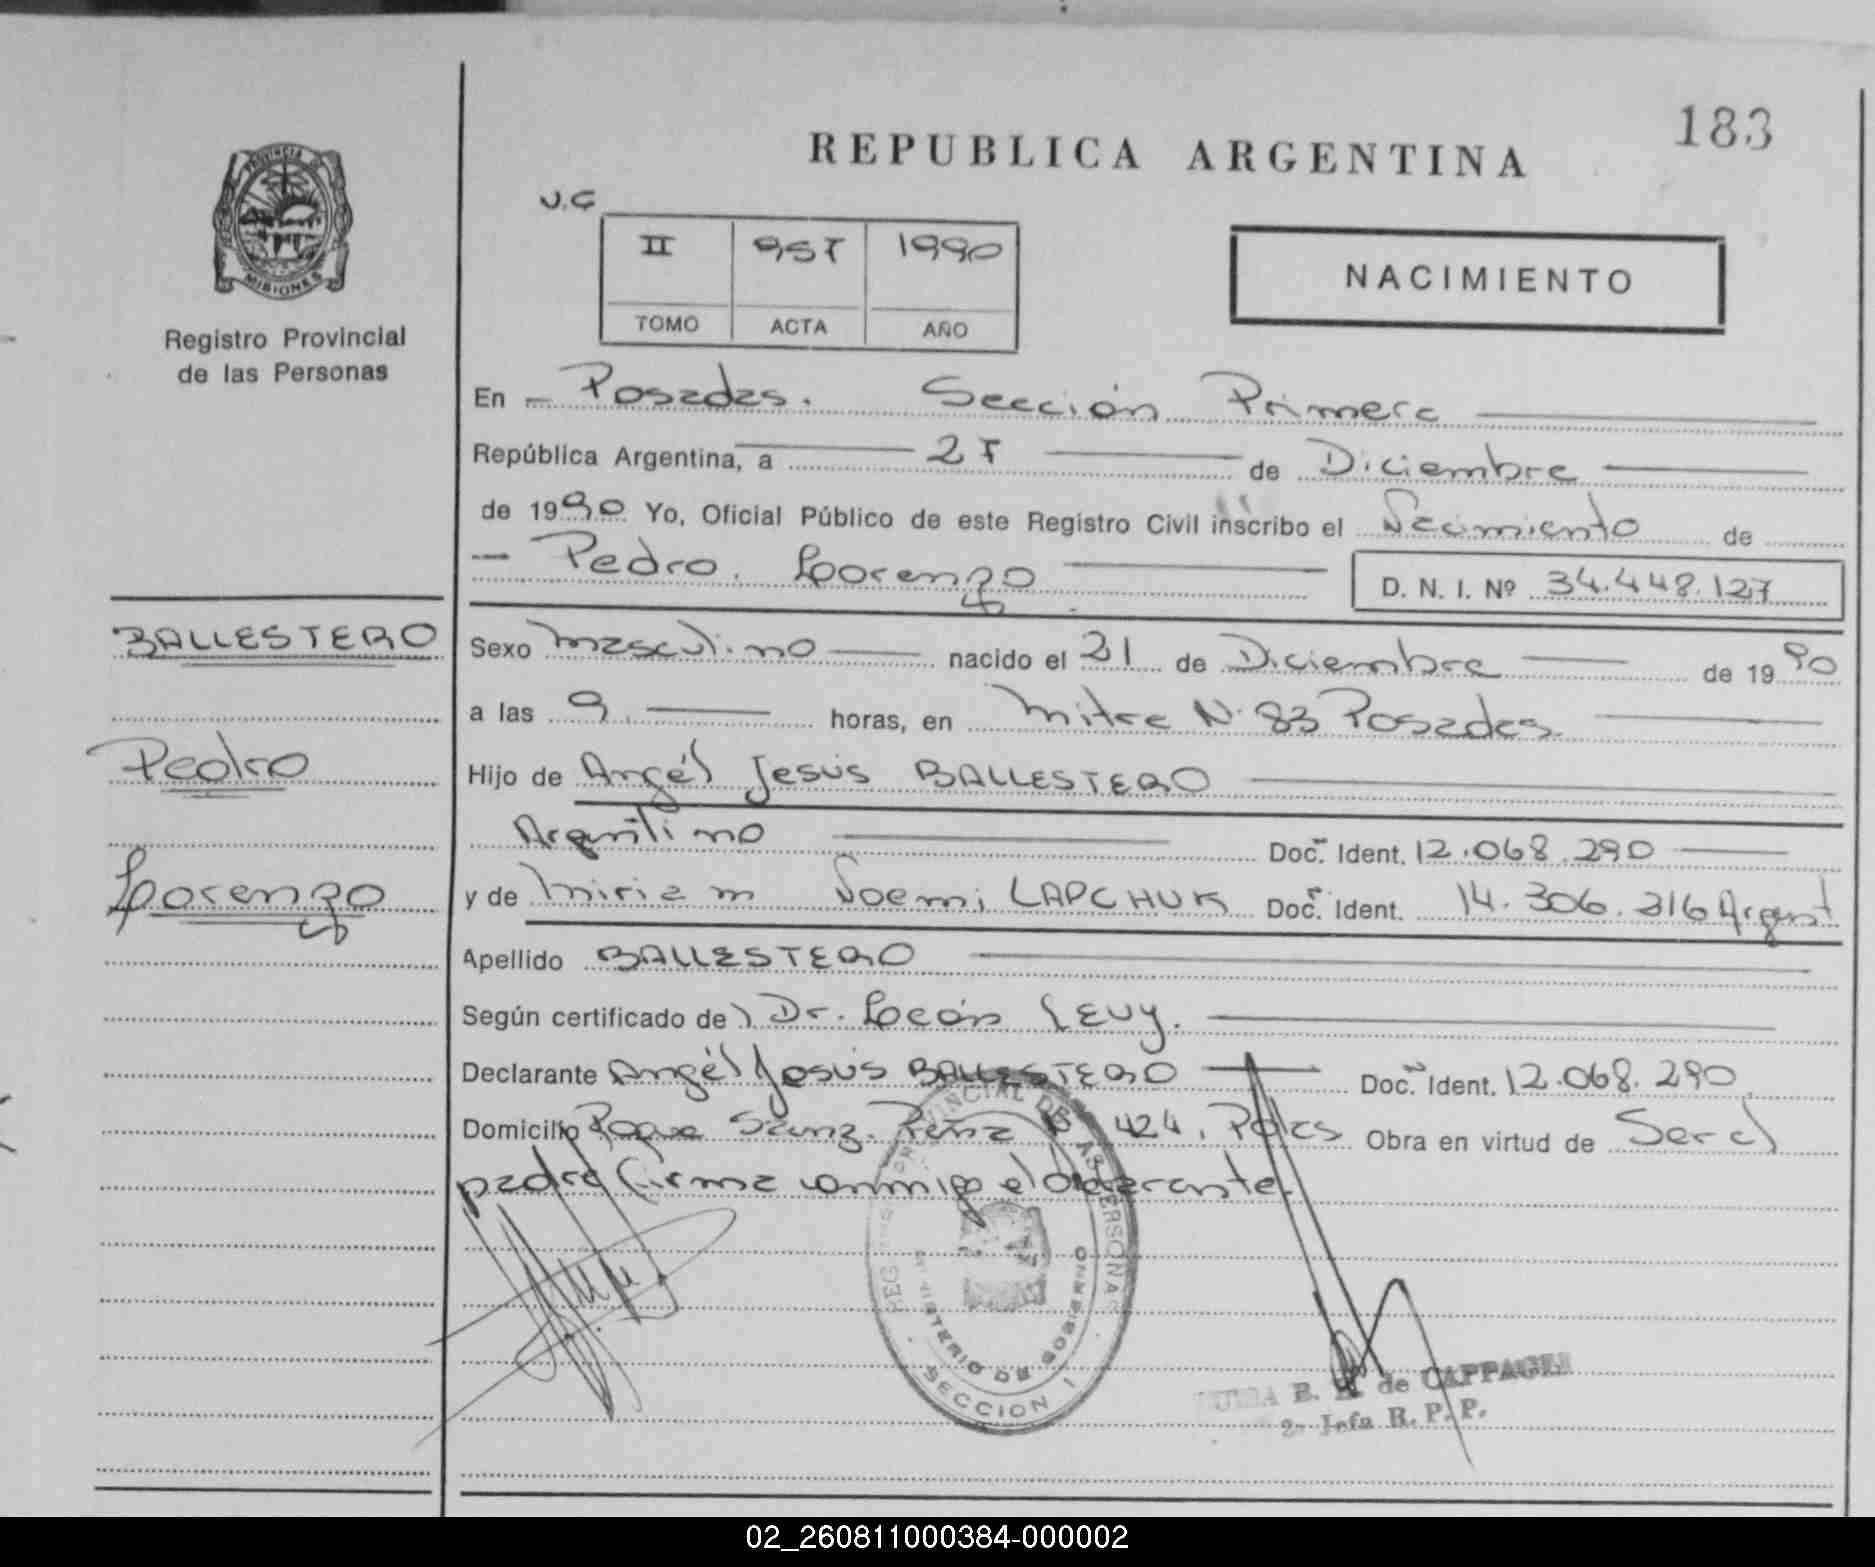 183
REPUBLICA ARGENTINA
PROVINCIA DE
MISIONES
Registro Provincial
de las Personas
II 957 1990
TOMO ACTA AÑO
NACIMIENTO
En - Posadas. Sección Primera
República Argentina, a 27 de Diciembre
de 1990 Yo, Oficial Público de este Registro Civil inscribo el Nacimiento de
- Pedro Lorenzo
D. N. I. Nº 34.448.127
BALLESTERO
Pedro
Lorenzo
Sexo Masculino nacido el 21 de Diciembre de 1990
a las 9 horas, en Mitre N. 83 Posadas.
Hijo de Angél Jesús BALLESTERO
Argentino Doc. Ident. 12.068.290
y de Miriam Noemi LAPCHUK Doc. Ident. 14.306.316 Argent
Apellido BALLESTERO
Según certificado de) Dr. León Levy.
Declarante Angél Jesús BALLESTERO Doc. Ident. 12.068.290
Domicilio Roque Saenz Peña Nº 424, Pdas Obra en virtud de Ser el
padre firma conmigo el declarante.
REG PROVINCIAL DE LAS PERSONAS
MINISTERIO DE GOBIERNO
SECCION I
B. de CAPPAGLI
2º Jefa R. P. P.
02_260811000384-000002